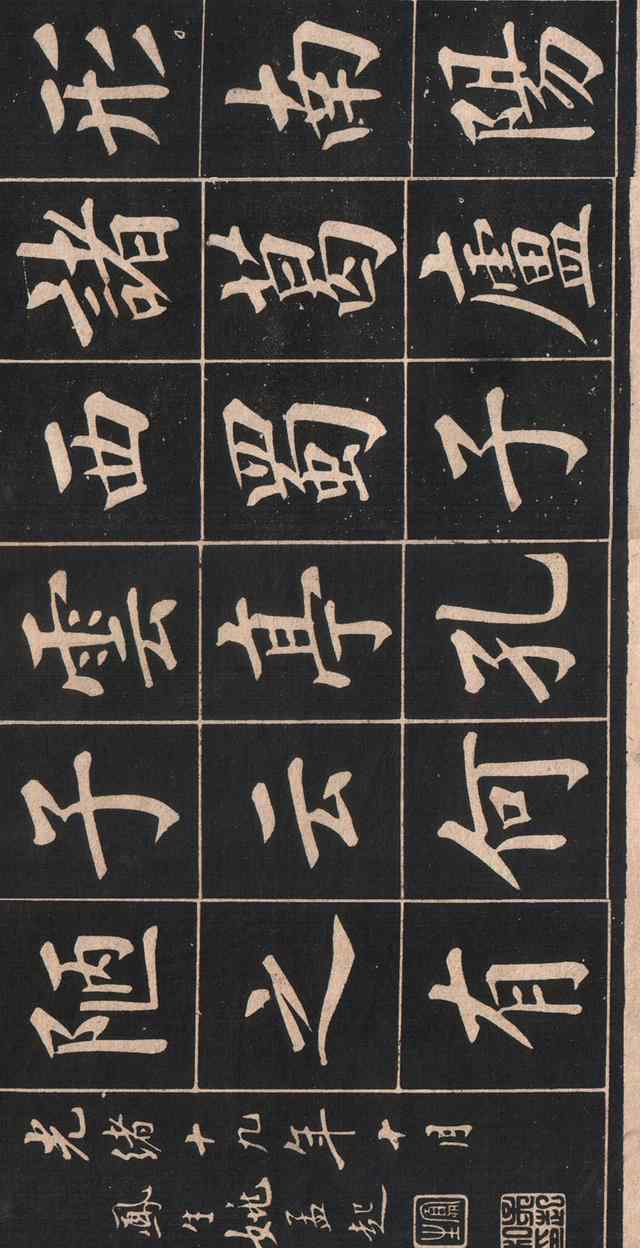 形南陽
諸葛廬
西蜀子
雲亭孔
子云何
陋之有
光緒十九年十月
鳳生姚孟起